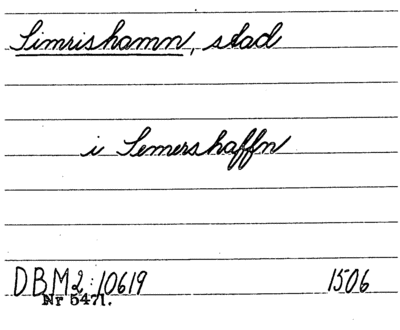 Simrishamn, stad
i Semershaffn
DBM2:10619 1506
Nr 5471.